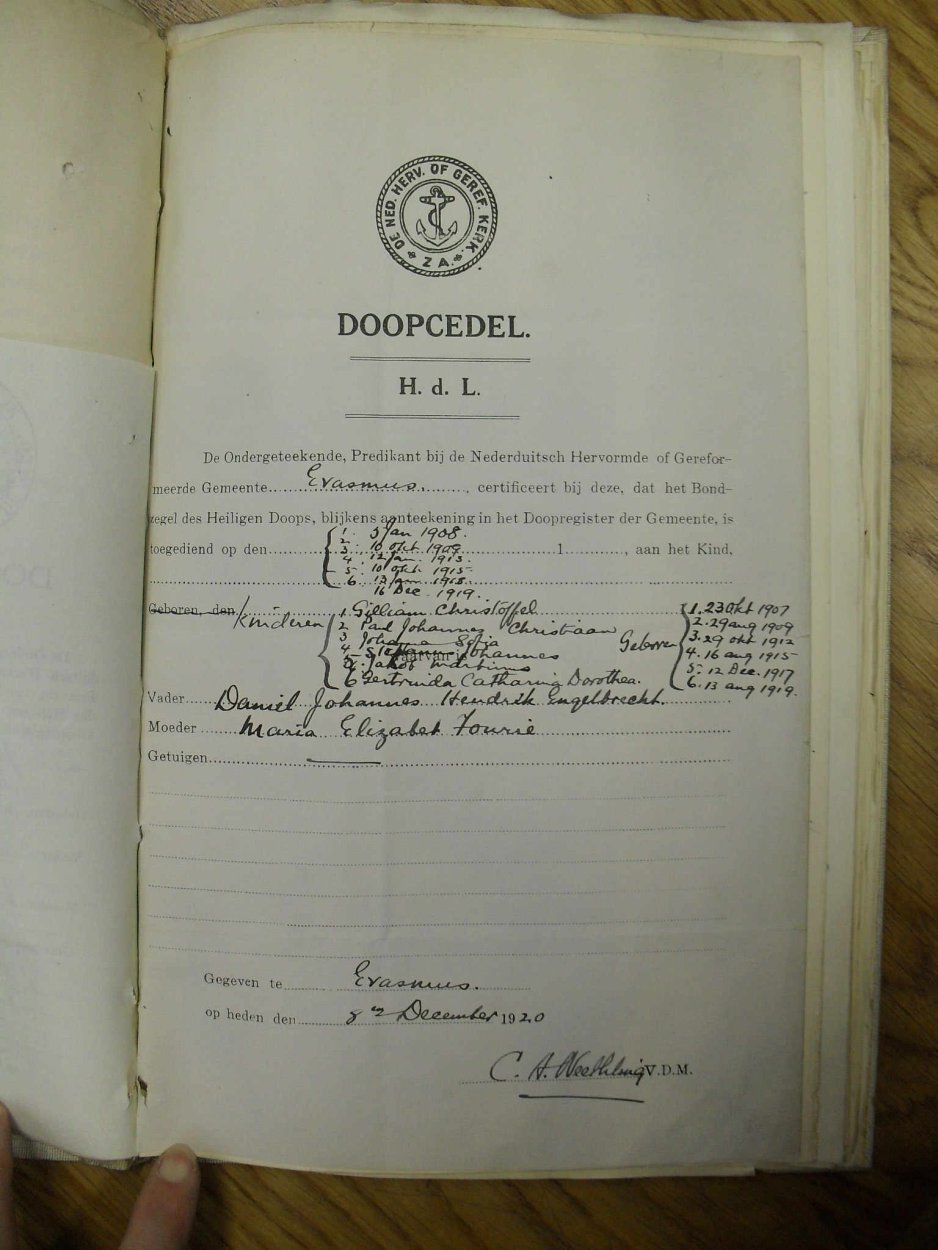 DE NED. HERV. OF GEREF. KERK. Z A.
DOOPCEDEL.
H. d. L.
De Ondergeteekende, Predikant bij de Nederduitsch Hervormde of Gerefor-
meerde Gemeente Erasmus. , certificeert bij deze, dat het Bond-
zegel des Heiligen Doops, blijkens aanteekening in het Doopregister der Gemeente, is
1. 5 Jan 1908.
2. 10 okt. 1909
toegediend op den 3. 12 jan. 1913. 1 , aan het Kind,
4. 10 okt. 1915
5. 13 jan. 1918.
6. 16 Dec. 1919.
Geboren, den kinderen 1. Gilliam Christoffel 1. 23 Okt 1907
2 Paul Johannes Christiaan Geboren 2. 29 aug 1909
3 Johanna Sofia 3. 29 okt 1912
4 Johannes 4. 16 aug 1915
5. Jakob Marthinus 5. 12 Dec. 1917
6 Gertruida Catharina Dorothea. 6. 13 aug 1919.
Vader Daniel Johannes Hendrik Engelbrecht.
Moeder Maria Elizabet Fourie
Getuigen
Gegeven te Erasmus.
op heden den 8 December 1920
C. A. Neethling V.D.M.